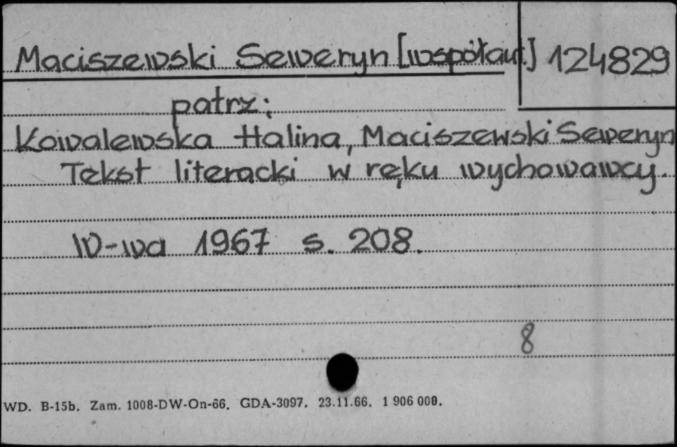 Maciszewski Seweryn [współaut] 124829
patrz:
Kowalewska Halina, Maciszewski Seweryn
Tekst literacki w ręku wychowawcy.
W-wa 1967 s. 208.
8
WD. B-15b. Zam. 1008-DW-On-66. GDA-3097. 23.11.66. 1 906 000.